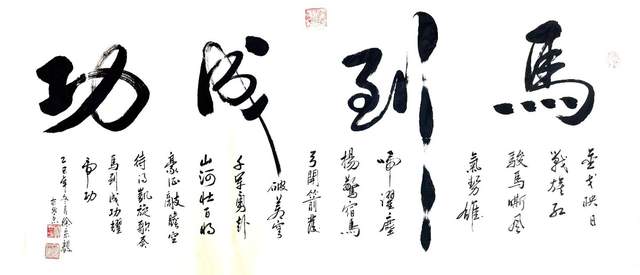 馬到成功
金戈映日
戰旗紅
駿馬嘶風
氣勢雄
啼濯塵
揚驚宿鳥
弓開箭發
破蒼穹
千軍勇赴
山河壯百將
豪征敵膽空
待得凱旋歌奏
馬到成功耀
帝功